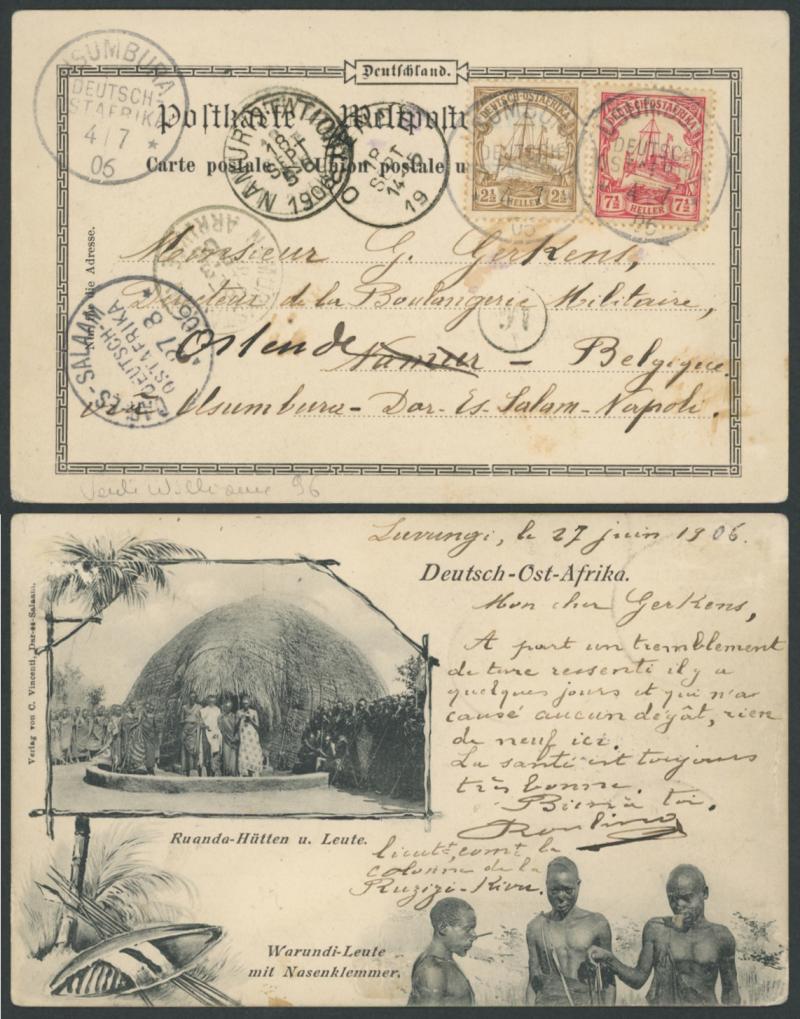 Deutschland.
Postkarte — Weltpostverein
Carte postale — Union postale u
USUMBURA
DEUTSCH-
OSTAFRIKA
4/7
06
NAMUR (STATION)
18
SEPT
1906
SEPT
14-15
19
DEUTSCH-OSTAFRIKA
2½ 2½
HELLER
DEUTSCH-OSTAFRIKA
7½ 7½
HELLER
USUMBURA
DEUTSCH-
4 7
06
USUMBURA
DEUTSCH-
OSTAFRIKA
4 7
06
für die Adresse.
Monsieur G. Gerkens,
Directeur de la Boulangerie Militaire,
Ostende Namur – Belgique.
viâ Usumbura – Dar-Es-Salam – Napoli.
ES-SALAAM
DEUTSCH-
OSTAFRIKA
27 8
06
Luvungi, le 27 juin 1906.
Deutsch-Ost-Afrika.
Mon cher Gerkens,
A part un tremblement
de terre ressenti il y a
quelques jours et qui n'a
causé aucun dégât, rien
de neuf ici.
La santé est toujours
très bonne.
Bien à toi.
lieutt, comt la
colonne de la
Ruzizi-Kivu.
Verlag von C. Vincenti, Dar-es-Salaam.
Ruanda-Hütten u. Leute.
Warundi-Leute
mit Nasenklemmer.